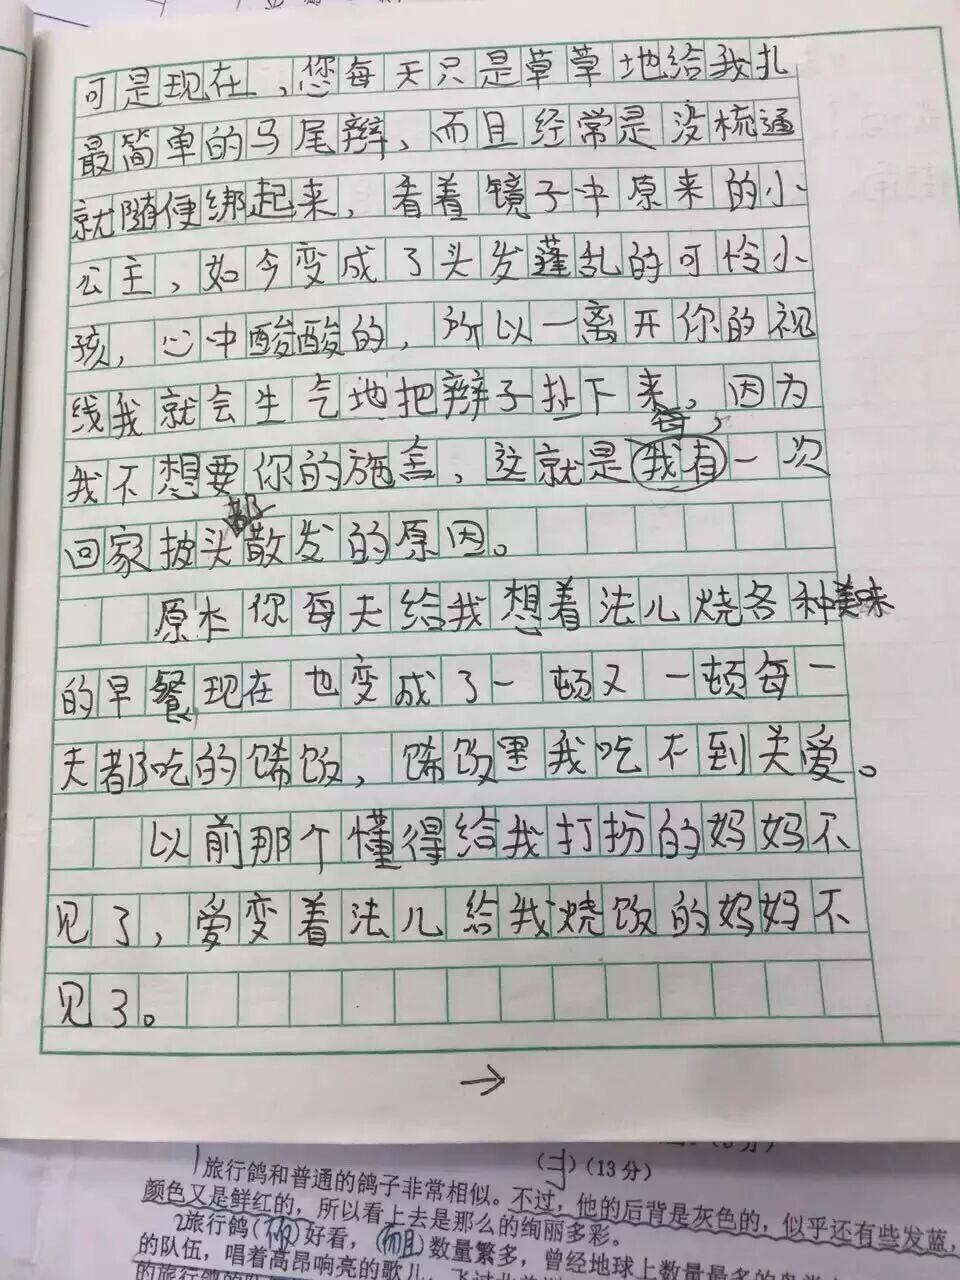 可是现在，您每天只是草草地给我扎
最简单的马尾辫，而且经常是没梳通
就随便绑起来，看着镜子中原来的小
公主，如今变成了头发蓬乱的可怜小
孩，心中酸酸的，所以一离开你的视
线我就会生气地把辫子扯下来，因为
我不想要你的施舍，这就是我有一次
每
回家披头散发的原因。
都
原本你每天给我想着法儿烧各种美味
的早餐，现在也变成了一顿又一顿每一
天都吃的馋饭，馋饭里我吃不到关爱。
以前那个懂得给我打扮的妈妈不
见了，爱变着法儿给我烧饭的妈妈不
见了。
→
旅行鸽和普通的鸽子非常相似。不过，他的后背是灰色的，似乎还有些发蓝，
（ ）（13分）
颜色又是鲜红的，所以看上去是那么的绚丽多彩。
2旅行鸽（ ）好看，（而且）数量繁多，曾经地球上数量最多的鸟类
的队伍，唱着高昂响亮的歌儿，飞过北美洲